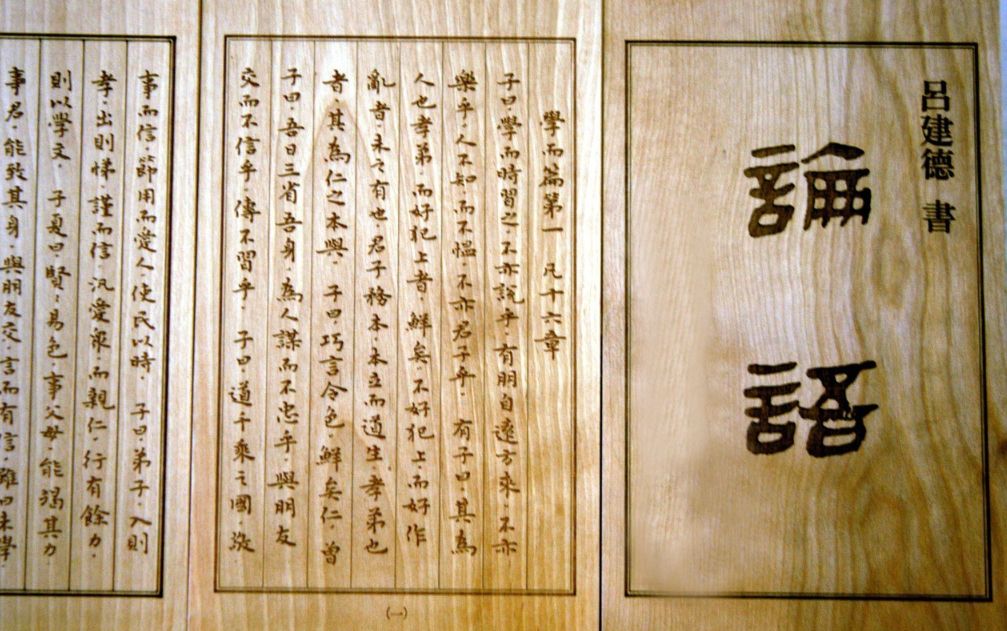 呂建德 書
論語
學而篇第一 凡十六章
子曰.學而時習之.不亦說乎.有朋自遠方來.不亦
樂乎.人不知.而不慍.不亦君子乎. 有子曰.其為
人也孝弟.而好犯上者.鮮矣.不好犯上.而好作
亂者.未之有也.君子務本.本立而道生.孝弟也
者.其為仁之本與. 子曰.巧言令色.鮮矣仁.曾
子曰.吾日三省吾身.為人謀而不忠乎.與朋友
交而不信乎.傳不習乎. 子曰.道千乘之國.敬
(一)
事而信.節用而愛人.使民以時. 子曰.弟子.入則
孝.出則悌.謹而信.汎愛眾.而親仁.行有餘力.
則以學文. 子夏曰.賢〻易色.事父母.能竭其力.
事君.能致其身.與朋友交.言而有信.雖曰未學